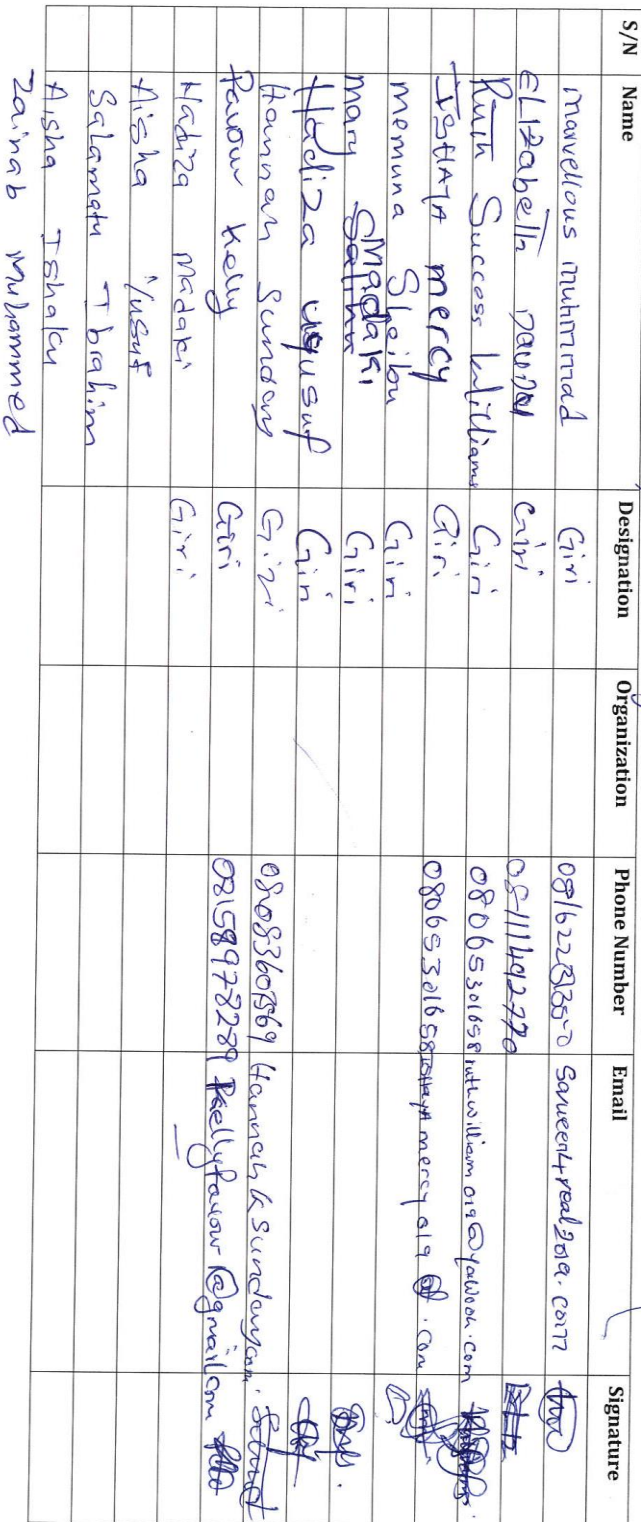 S/N Name Designation Organization Phone Number Email Signature
marvellous muhmmad Giri Sarueen4real2019.com
ELIZabeth Giri 08111492770
Ruth Success Williams Giri 08065301658 ruthwilliam019@yahooh.com
ISHAYA mercy Giri 08065301658 ISHAYA mercy 019 @.com
memuna Sheibu Giri
mary Madaki Giri
Hadiza yusuf Giri
Hannah Sunday Giri Hannah k Sunday com.
Favour Kelly Giri 08158978289 kellyfavour@gmail com
Hadiza Madaki Giri
Aisha Yusuf
Salamatu Ibrahim
Aisha Ishaku
Zainab Muhammed